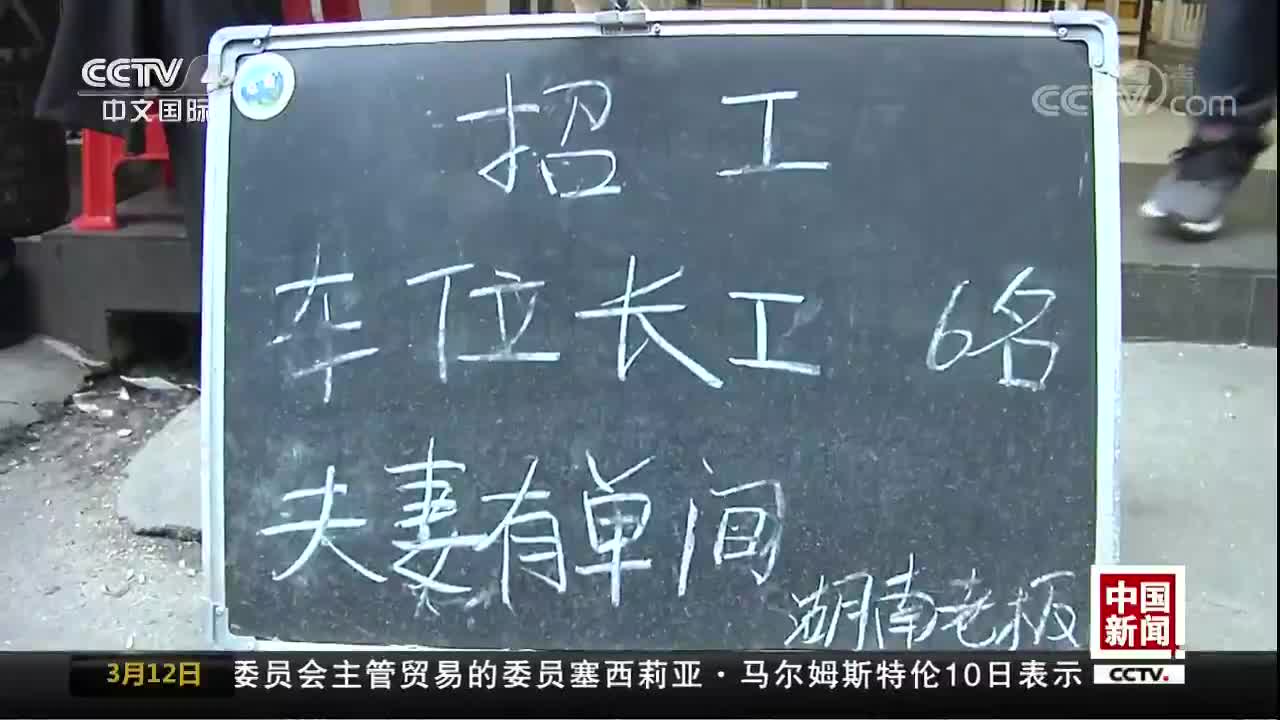 CCTV 4
中文国际
CCTV.com
招 工
车位长工 6名
夫妻有单间
湖南老板
中国
新闻
CCTV.
3月12日 委员会主管贸易的委员塞西莉亚·马尔姆斯特伦10日表示